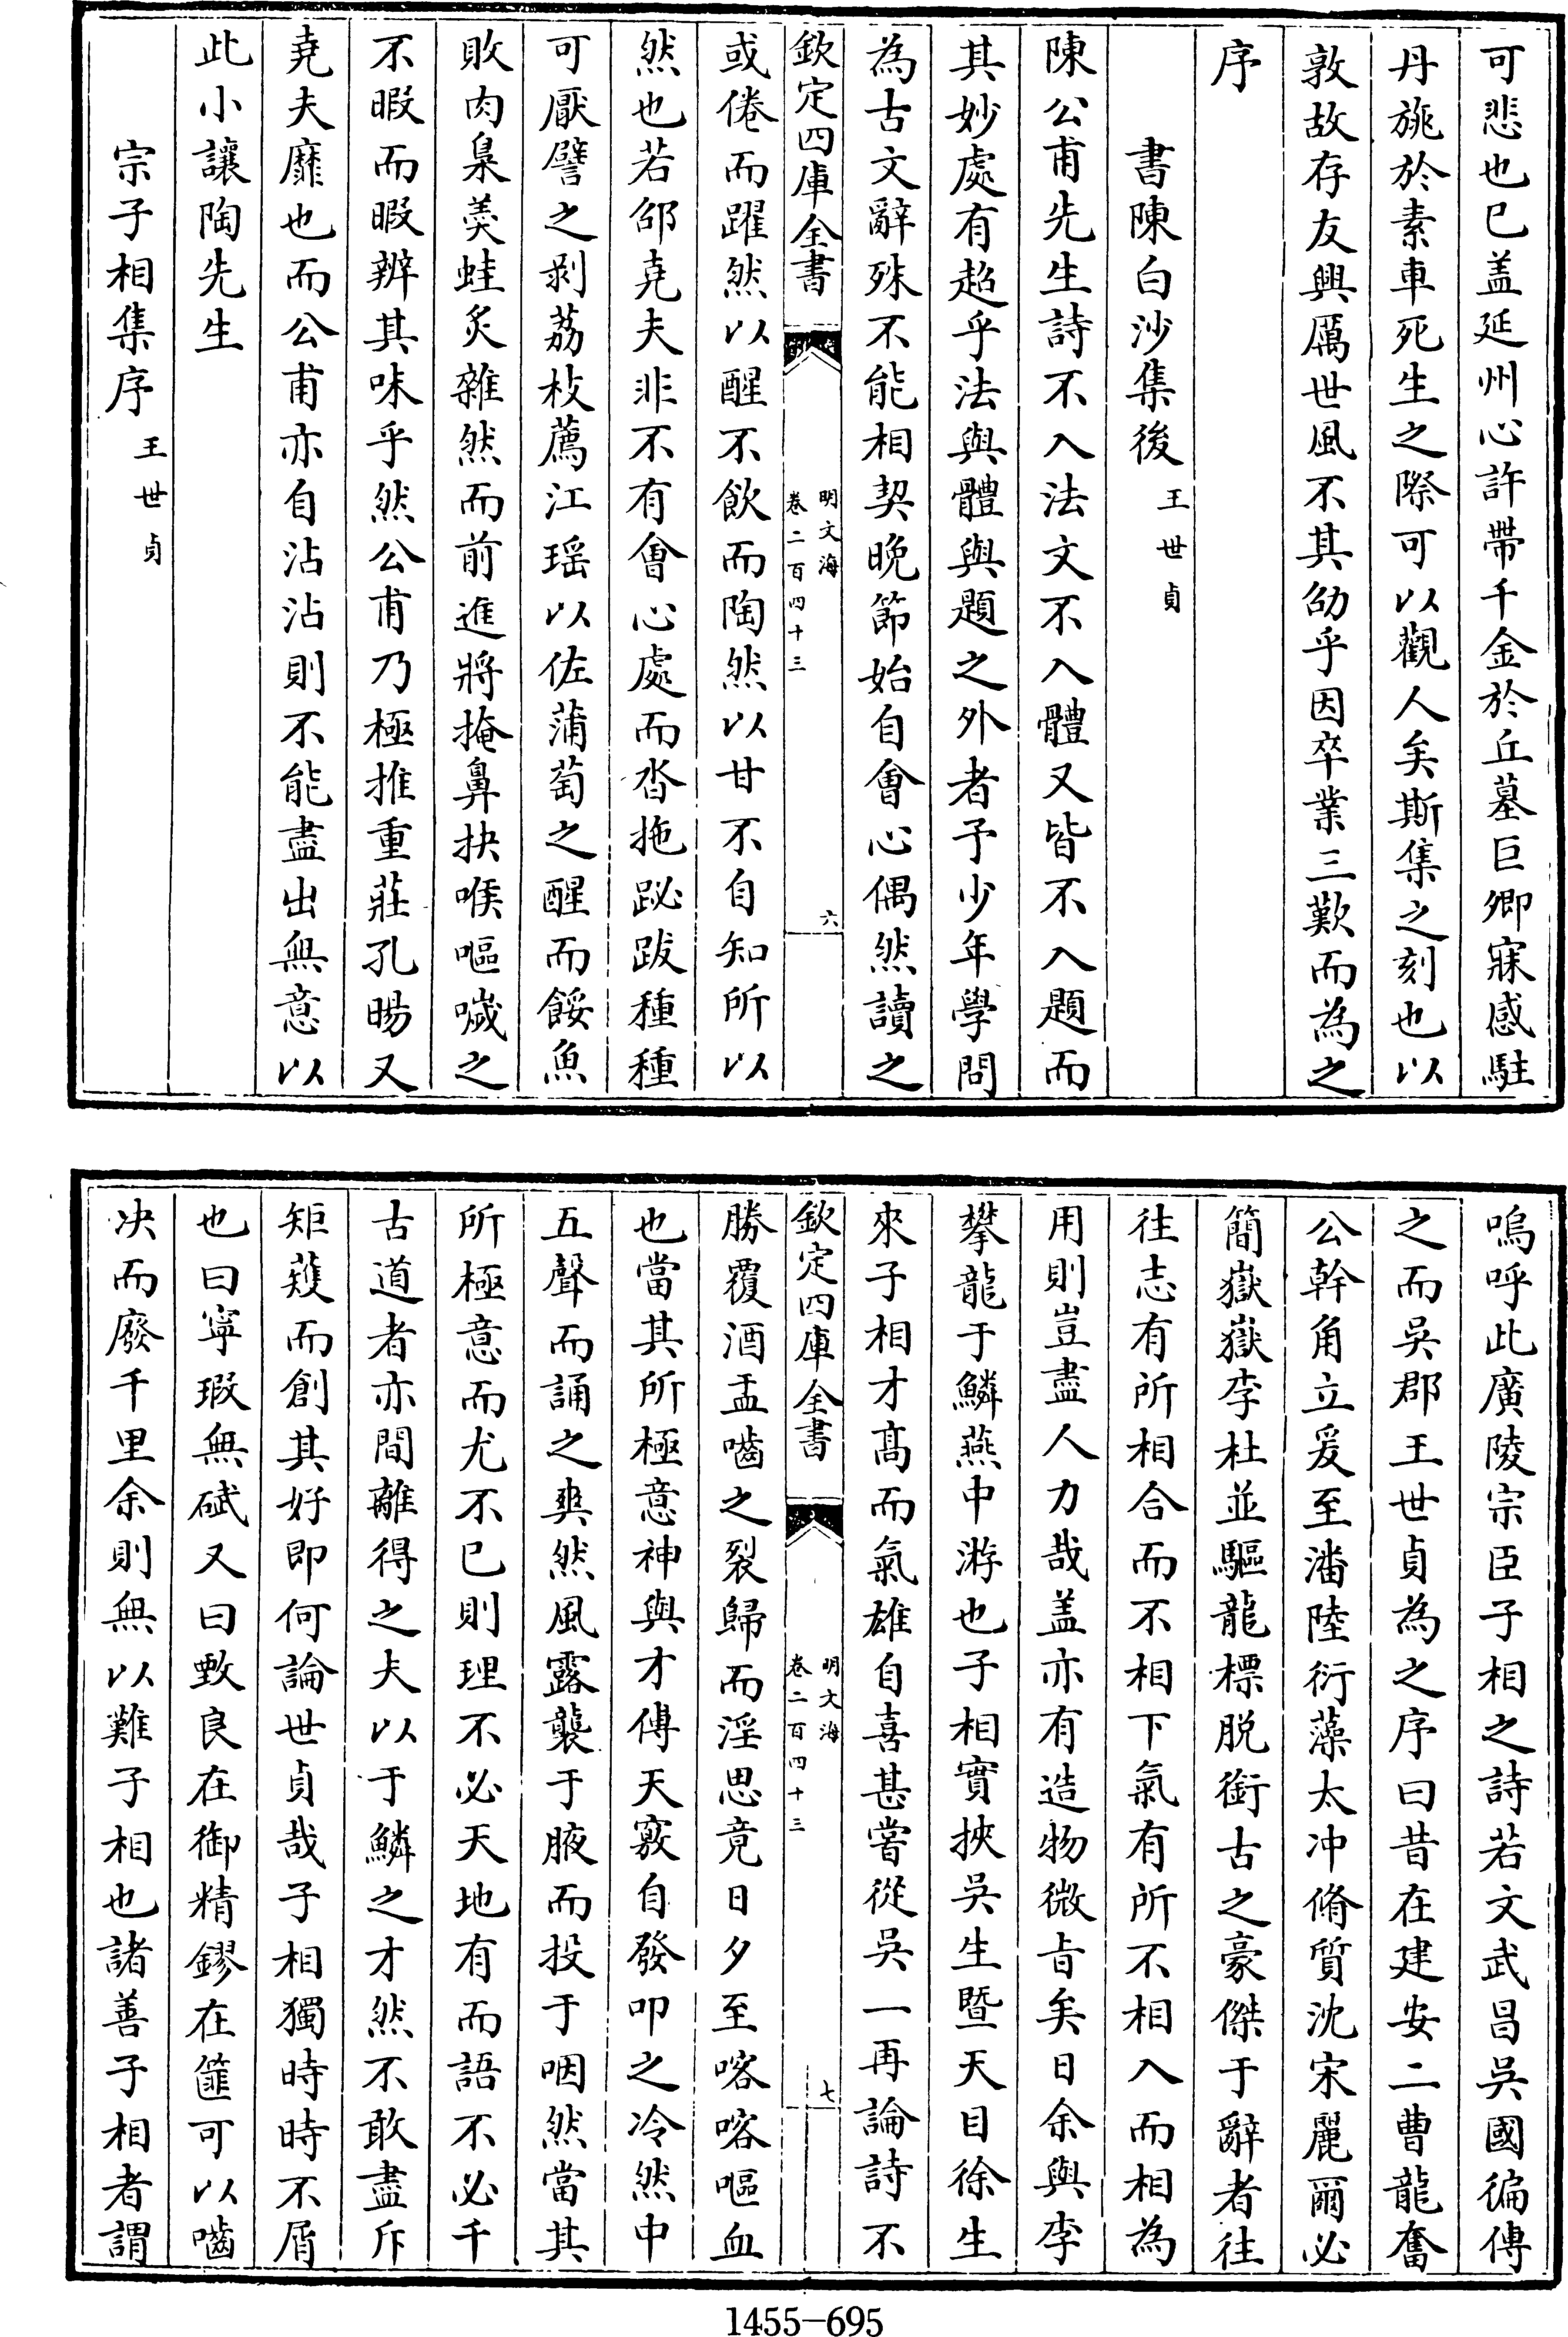 可悲也已盖延州心許帶千金於丘墓巨卿寐感駐
丹旐於素車死生之際可以觀人矣斯集之刻也以
敦故存友興厲世風不其劭乎因卒業三歎而為之
序
書陳白沙集後 王世貞
陳公甫先生詩不入法文不入體又皆不入題而
其妙處有超乎法與體與題之外者予少年學問
為古文辭殊不能相契晚節始自會心偶然讀之
欽定四庫全書 明文海 卷二百四十三 六
或倦而躍然以醒不飲而陶然以甘不自知所以
然也若邵堯夫非不有會心處而沓拖跛跋種種
可厭譬之剥荔枝薦江瑶以佐蒲萄之醒而餒魚
敗肉梟羮蛙炙雜然而前進將掩鼻抉喉嘔噦之
不暇而暇辨其味乎然公甫乃極推重莊孔暘又
堯夫靡也而公甫亦自沾沾則不能盡出無意以
此小讓陶先生
宗子相集序 王世貞
嗚呼此廣陵宗臣子相之詩若文武昌吳國徧傳
之而吳郡王世貞為之序曰昔在建安二曹龍奮
公幹角立爰至潘陸衍藻太冲脩質沈宋麗爾必
簡嶽嶽李杜並驅龍標脱銜古之豪傑于辭者往
往志有所相合而不相下氣有所不相入而相為
用則豈盡人力哉盖亦有造物微㫖矣日余與李
攀龍于鱗燕中游也子相實挾吳生暨天目徐生
來子相才髙而氣雄自喜甚嘗從吳一再論詩不
欽定四庫全書 明文海 卷二百四十三 七
勝覆酒盂嚙之裂歸而淫思竟日夕至喀喀嘔血
也當其所極意神與才傅天竅自發叩之冷然中
五聲而誦之爽然風露襲于腋而投于咽然當其
所極意而尤不已則理不必天地有而語不必千
古道者亦間離得之夫以于鱗之才然不敢盡斥
矩矱而創其好即何論世貞哉子相獨時時不屑
也曰寧瑕無碔又曰致良在御精鏐在篚可以嚙
决而廢千里余則無以難子相也諸善子相者謂
1455—695